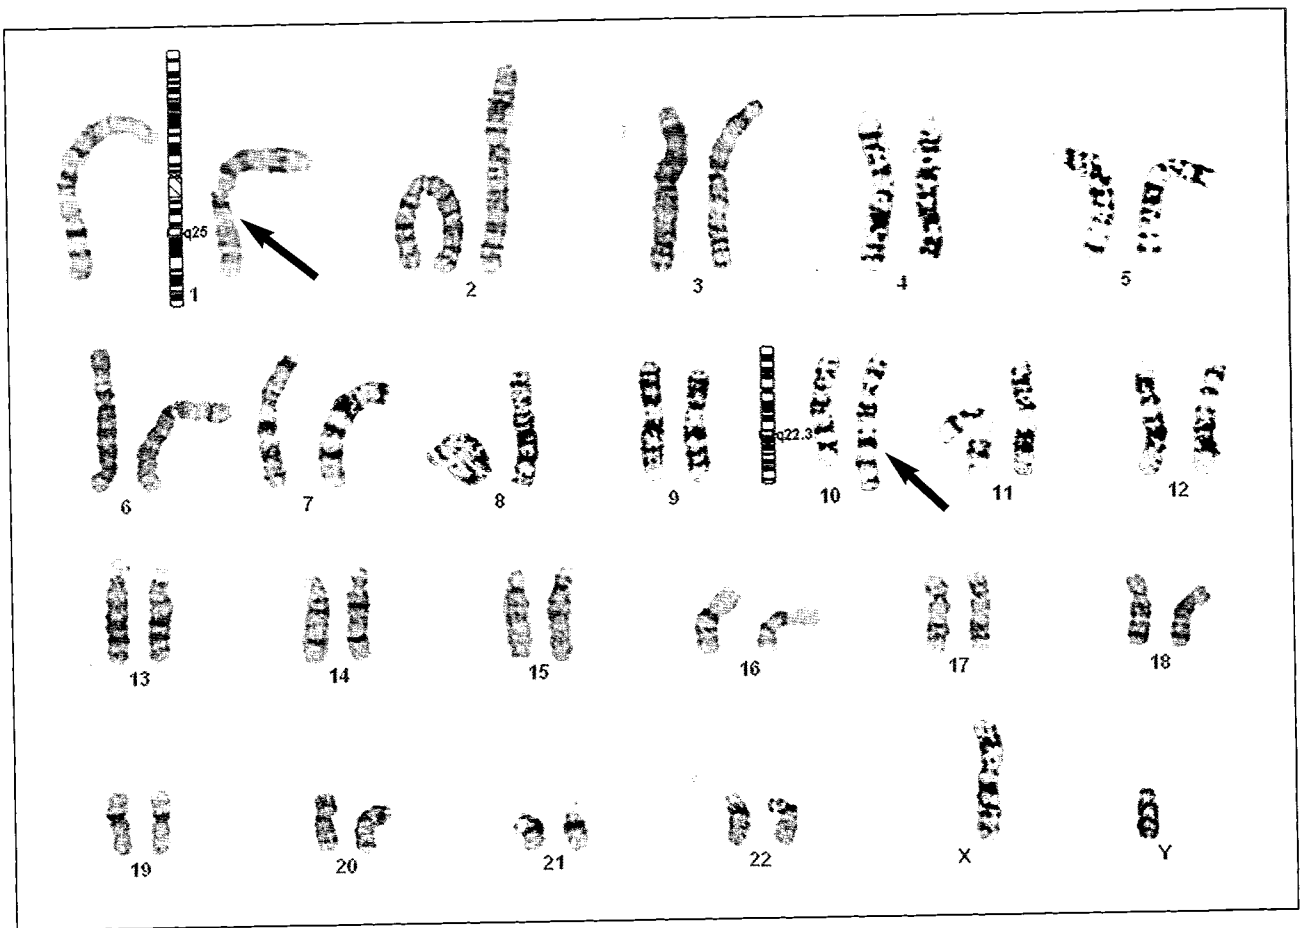 q25
1
2
3
4
5
q22.3
6
7
8
9
10
11
12
13
14
15
16
17
18
19
20
21
22
X
Y